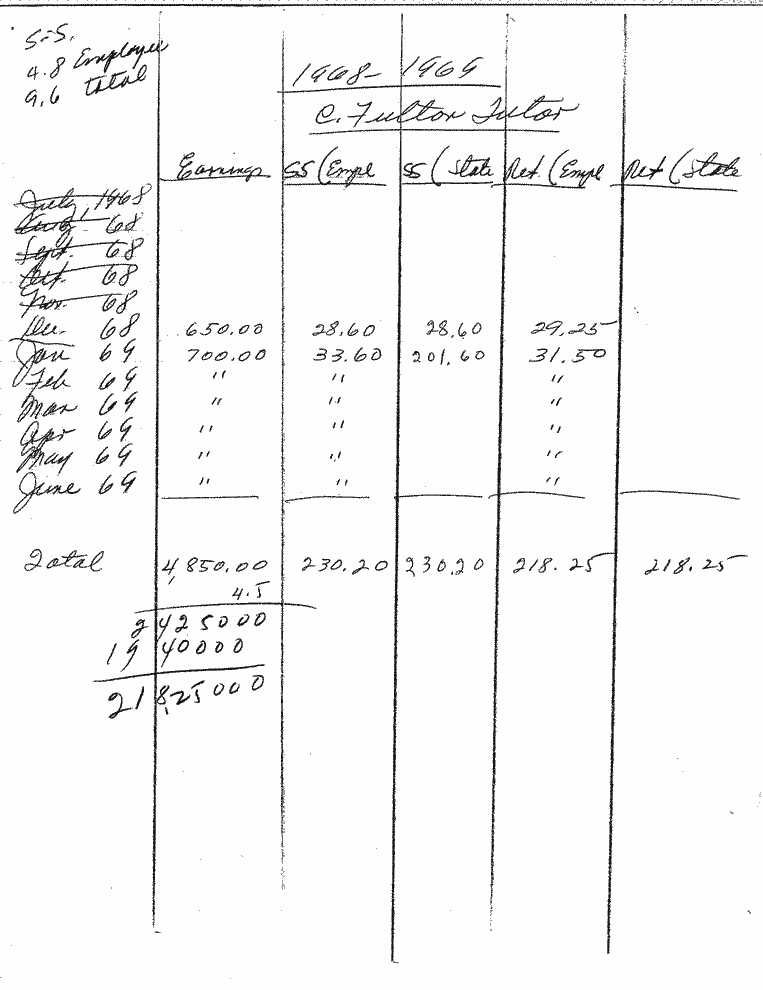 S.S.
4.8 Employee
9.6 total
1968-1969
C. Fulton Tutor
Earnings SS (Empl SS (State Ret. (Empl Ret (State
July, 1968
Aug. 68
Sept. 68
Oct. 68
Nov. 68
Dec. 68 650.00 28.60 28.60 29.25
Jan 69 700.00 33.60 201.60 31.50
Feb 69 " " "
Mar 69 " " "
Apr 69 " " "
May 69 " " "
June 69 " " "
Total 4,850.00 230.20 230.20 218.25 218.25
4.5
2425000
1940000
21825000